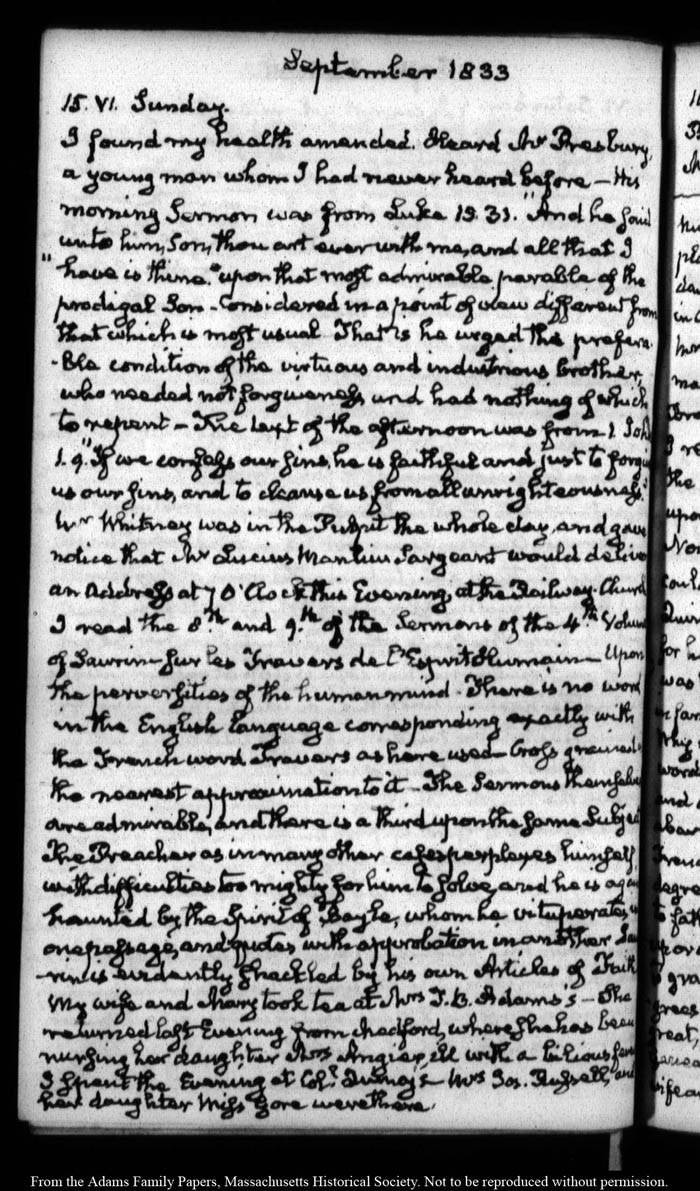 September 1833
15. VI. Sunday.
I found my health amended. Heard Mr Presbury,
a young man whom I had never heard before — His
morning Sermon was from Luke 15. 31. "And he said
unto him, Son, thou art ever with me, and all that I
"have is thine." upon that most admirable parable of the
prodigal Son — Considered in a point of view different from
that which is most usual That is he urged the prefera-
-ble condition of the virtuous and industrious brother,
who needed not forgiveness and had nothing of which
to repent — The text of the afternoon was from 1. John
1. 9. "If we confess our sins, he is faithful and just to forgive
us our sins, and to cleanse us from all unrighteousness."
Mr Whitney was in the Pulpit the whole day, and gave
notice that Mr Lucius Manlius Sargeant would deliver
an Address at 7 O'Clock this Evening, at the Railway Church
I read the 8th and 9th of the Sermons of the 4th Volume
of Saurin — sur les Travers de l'Esprit Humain — Upon
the perversities of the human mind. There is no word
in the English Language corresponding exactly with
the French word Travers as here used — Cross grained
the nearest approximation to it — The Sermons themselves
are admirable, and there is a third upon the same Subject
The Preacher as in many other cases perplexes himself
with difficulties too mighty for him to solve, and he is again
haunted by the Spirit of Bayle, whom he vituperates, in
one passage, and quotes with approbation in another Sau-
-rin is evidently shackled by his own Articles of Faith
My wife and Mary took tea at Mrs T. B. Adams's — She
returned last Evening from Medford, where she has been
nursing her daughter Mrs Angier, ill with a bilious fever
I spent the Evening at Coll. Quincy's — Mrs Jos. Russell, and
her daughter Miss Gore were there.
From the Adams Family Papers, Massachusetts Historical Society. Not to be reproduced without permission.